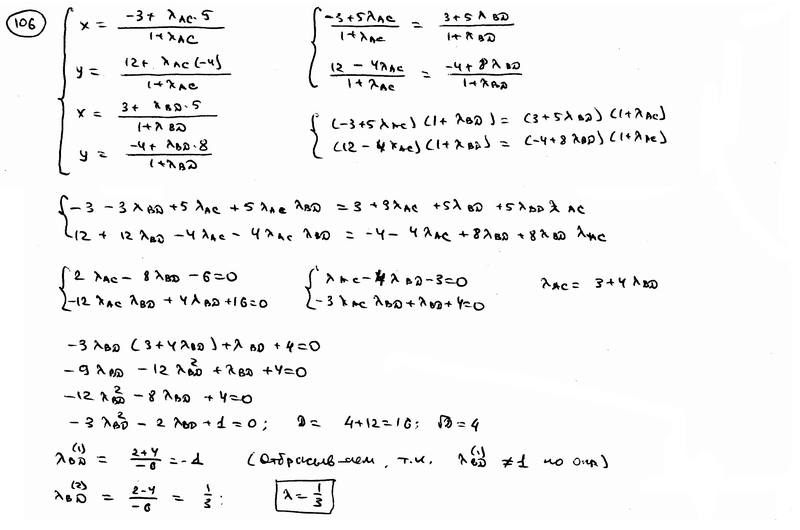 106
x = (-3 + λ_AC · 5)/(1 + λ_AC)
y = (12 + λ_AC (-4))/(1 + λ_AC)
x = (3 + λ_BD · 5)/(1 + λ_BD)
y = (-4 + λ_BD · 8)/(1 + λ_BD)
(-3 + 5λ_AC)/(1 + λ_AC) = (3 + 5λ_BD)/(1 + λ_BD)
(12 - 4λ_AC)/(1 + λ_AC) = (-4 + 8λ_BD)/(1 + λ_BD)
(-3 + 5λ_AC)(1 + λ_BD) = (3 + 5λ_BD)(1 + λ_AC)
(12 - 4λ_AC)(1 + λ_BD) = (-4 + 8λ_BD)(1 + λ_AC)
-3 - 3λ_BD + 5λ_AC + 5λ_AC λ_BD = 3 + 3λ_AC + 5λ_BD + 5λ_BD λ_AC
12 + 12λ_BD - 4λ_AC - 4λ_AC λ_BD = -4 - 4λ_AC + 8λ_BD + 8λ_BD λ_AC
2λ_AC - 8λ_BD - 6 = 0
-12λ_AC λ_BD + 4λ_BD + 16 = 0
λ_AC - 4λ_BD - 3 = 0
-3λ_AC λ_BD + λ_BD + 4 = 0
λ_AC = 3 + 4λ_BD
-3λ_BD (3 + 4λ_BD) + λ_BD + 4 = 0
-9λ_BD - 12λ_BD² + λ_BD + 4 = 0
-12λ_BD² - 8λ_BD + 4 = 0
-3λ_BD² - 2λ_BD + 1 = 0; D = 4 + 12 = 16; √D = 4
λ_BD^(1) = (2+4)/(-6) = -1 (отбрасываем, т.к. λ_BD^(1) ≠ 1 по опр)
λ_BD^(2) = (2-4)/(-6) = 1/3; λ = 1/3